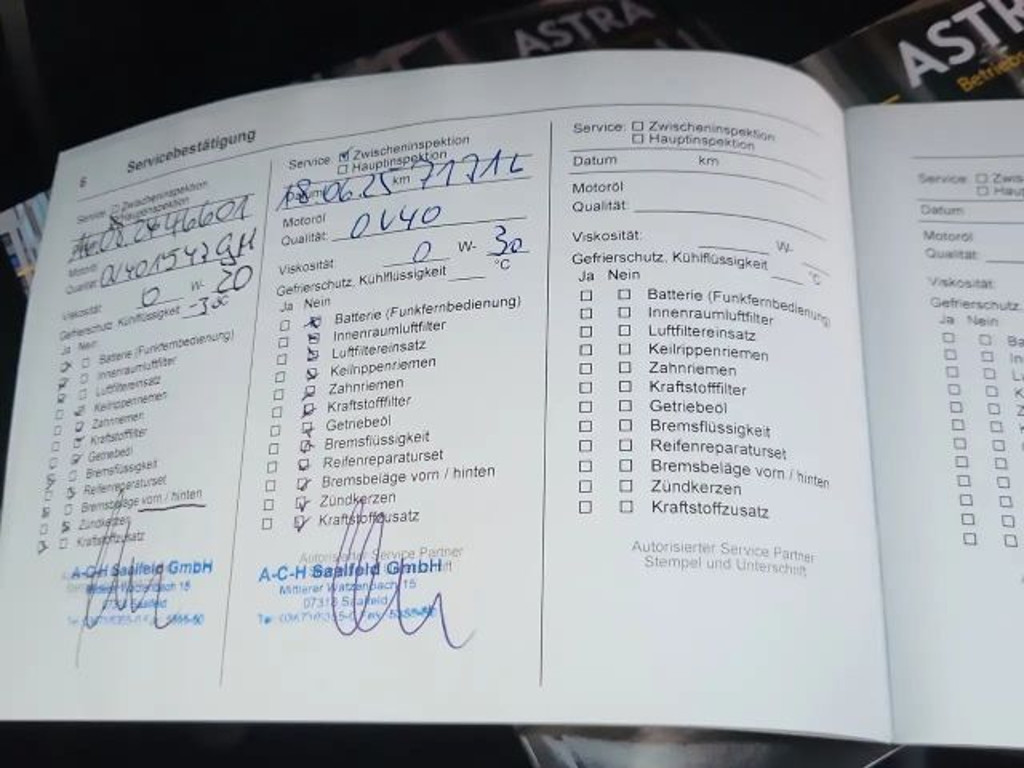 ASTRA
ASTR
6 Servicebestätigung
Service: Zwischeninspektion
Hauptinspektion
46601
Motoröl
Qualität:
Viskosität: 0 W- 20
Gefrierschutz, Kühlflüssigkeit
Ja Nein
Batterie (Funkfernbedienung)
Innenraumluftfilter
Luftfiltereinsatz
Keilrippenriemen
Zahnriemen
Kraftstofffilter
Getriebeöl
Bremsflüssigkeit
Reifenreparaturset
Bremsbeläge vorn / hinten
Zündkerzen
Kraftstoffzusatz
A-C-H Saalfeld GmbH
Service: Zwischeninspektion
Hauptinspektion
Datum 18.06.25 km
Motoröl
Qualität: 0V40
Viskosität: 0 W- 30
Gefrierschutz, Kühlflüssigkeit °C
Ja Nein
Batterie (Funkfernbedienung)
Innenraumluftfilter
Luftfiltereinsatz
Keilrippenriemen
Zahnriemen
Kraftstofffilter
Getriebeöl
Bremsflüssigkeit
Reifenreparaturset
Bremsbeläge vorn / hinten
Zündkerzen
Kraftstoffzusatz
Autorisierter Service Partner
A-C-H Saalfeld GmbH
Mittlerer Watzenbach 15
07318 Saalfeld
Service: Zwischeninspektion
Hauptinspektion
Datum km
Motoröl
Qualität:
Viskosität: W-
Gefrierschutz, Kühlflüssigkeit °C
Ja Nein
Batterie (Funkfernbedienung)
Innenraumluftfilter
Luftfiltereinsatz
Keilrippenriemen
Zahnriemen
Kraftstofffilter
Getriebeöl
Bremsflüssigkeit
Reifenreparaturset
Bremsbeläge vorn / hinten
Zündkerzen
Kraftstoffzusatz
Autorisierter Service Partner
Stempel und Unterschrift
Service: Zw
Hau
Datum
Motoröl
Qualität:
Viskosität:
Gefrierschutz
Ja Nein